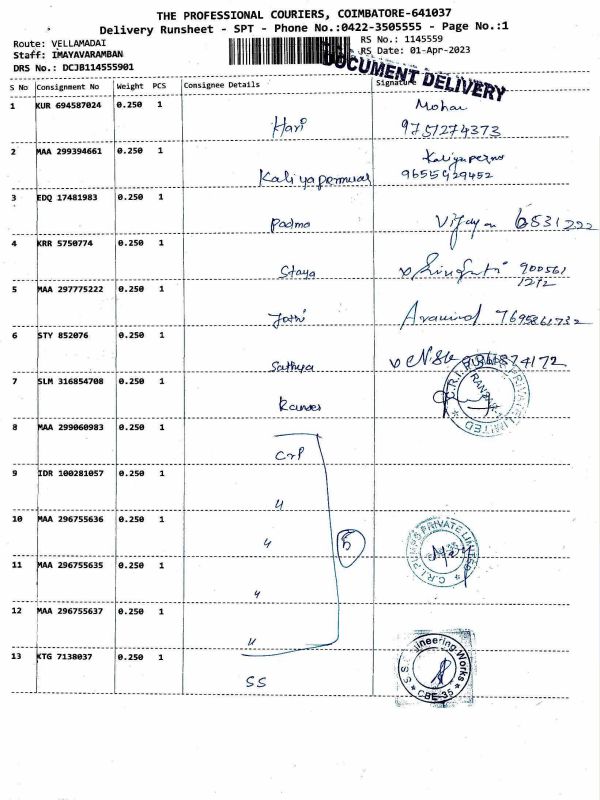 THE PROFESSIONAL COURIERS, COIMBATORE-641037
Delivery Runsheet - SPT - Phone No.:0422-3505555 - Page No.:1
Route: VELLAMADAI
RS No.: 1145559
Staff: IMAYAVARAMBAN
RS Date: 01-Apr-2023
DRS No.: DCJB114555901
DOCUMENT DELIVERY
S No Consignment No Weight PCS Consignee Details Signature
1 KUR 694587024 0.250 1
Mohan
Hari 9751274373
2 MAA 299394661 0.250 1
Kaliyaperumal
3 EDQ 17481983 0.250 1
Padma Vijayan 6831222
4 KRR 5750774 0.250 1
Staya 900561
1212
5 MAA 297775222 0.250 1
Jothi Aravind 7695861732
6 STY 852076 0.250 1
Sathya
7 SLM 316854708 0.250 1
C.R.I. PUMPS PRIVATE LIMITED
8 MAA 299060983 0.250 1
CRI
9 IDR 100281057 0.250 1
"
10 MAA 296755636 0.250 1
" 5
C.R.I. PUMPS PRIVATE LIMITED
11 MAA 296755635 0.250 1
"
12 MAA 296755637 0.250 1
"
13 KTG 7138037 0.250 1
SS
S.S. Engineering Works
CBE-35